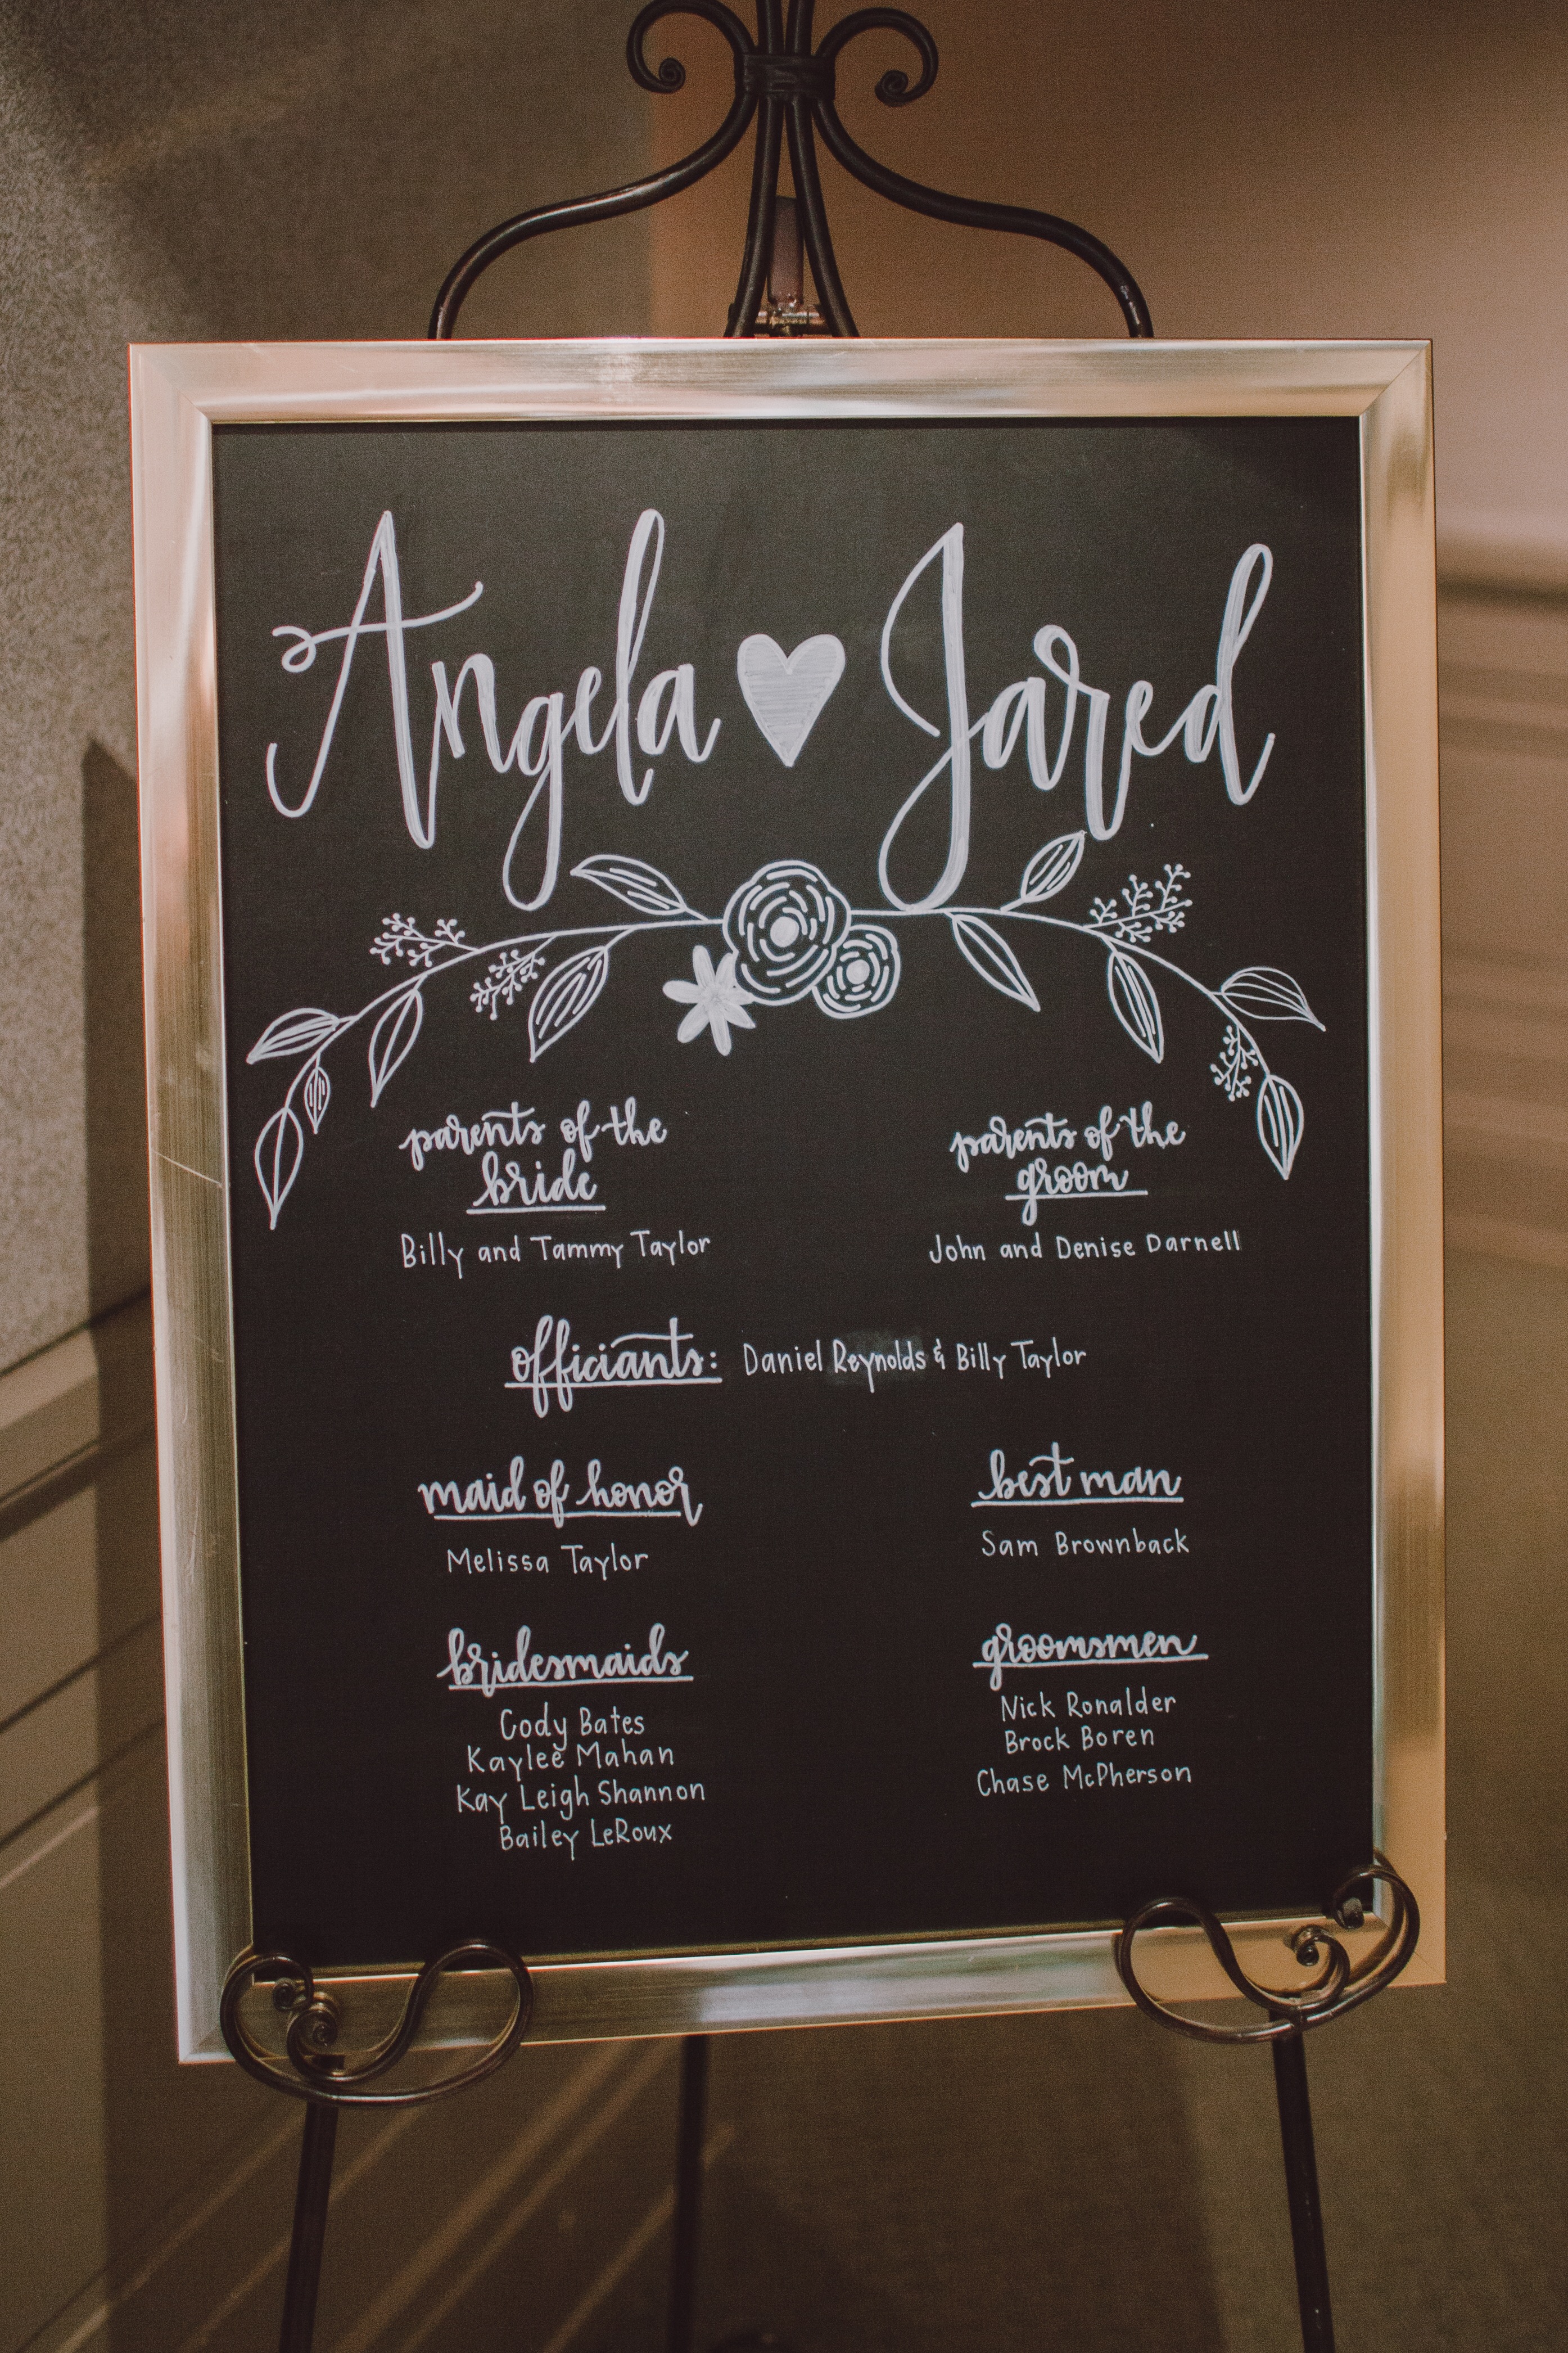 Angela ♥ Jared
parents of the
bride
Billy and Tammy Taylor
parents of the
groom
John and Denise Darnell
officiants: Daniel Reynolds & Billy Taylor
maid of honor
Melissa Taylor
best man
Sam Brownback
bridesmaids
Cody Bates
Kaylee Mahan
Kay Leigh Shannon
Bailey LeRoux
groomsmen
Nick Ronalder
Brock Boren
Chase McPherson